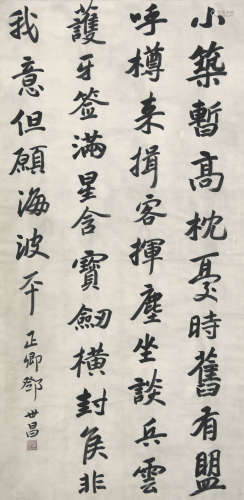 小築暫高枕憂時舊有盟
呼樽來揖客揮麈坐談兵雲
護牙籤滿星含寶劍橫封侯非
我意但願海波平
正卿鄧世昌